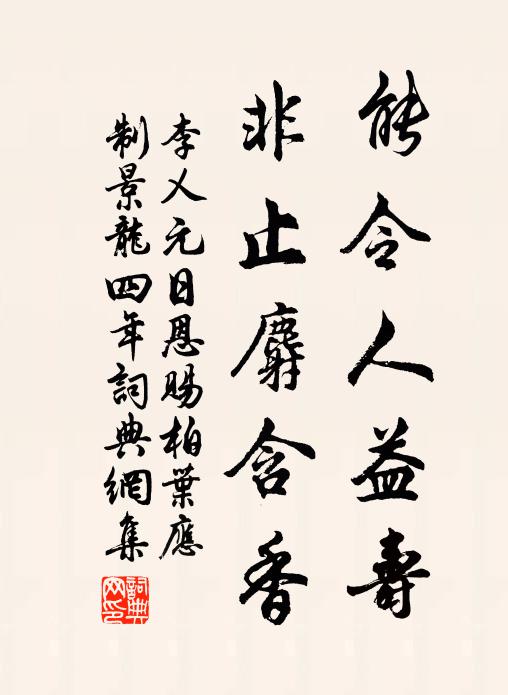 能令人益壽
非止麝含香
李乂元日恩賜柏葉應
制景龍四年詞典網集
詞典
网印